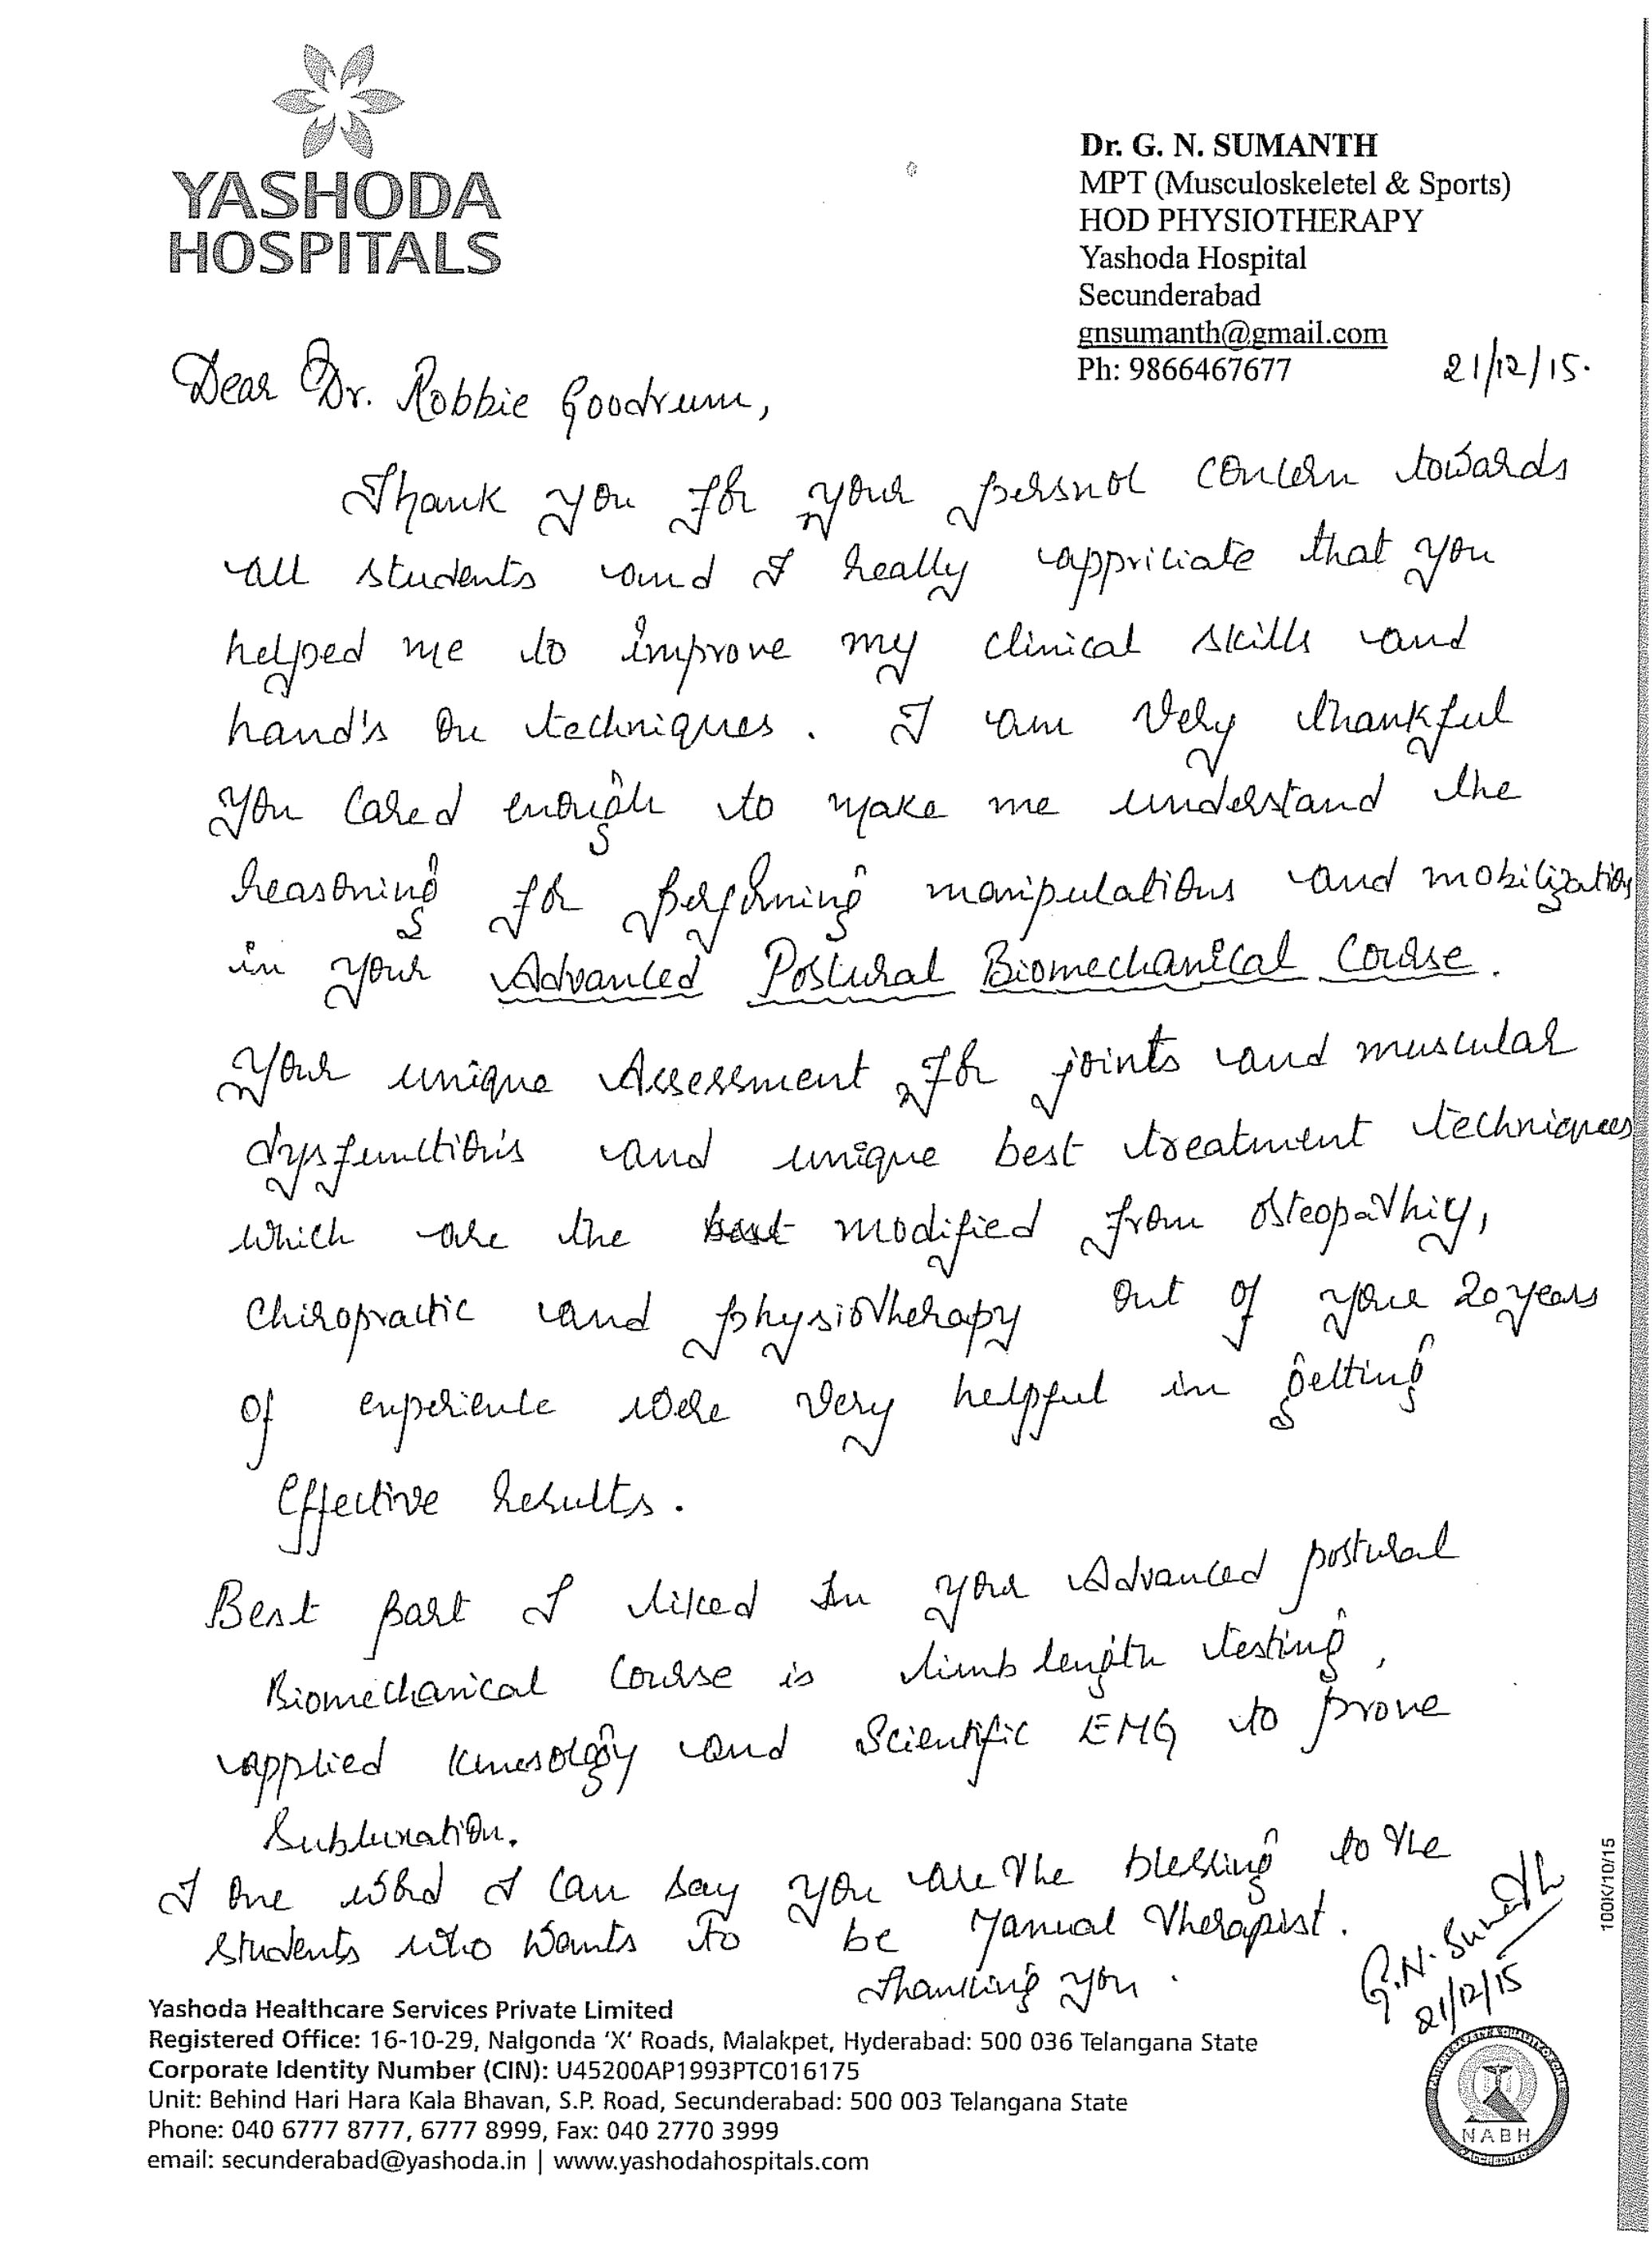 YASHODA
HOSPITALS
Dr. G. N. SUMANTH
MPT (Musculoskeletel & Sports)
HOD PHYSIOTHERAPY
Yashoda Hospital
Secunderabad
gnsumanth@gmail.com
Ph: 9866467677
21/12/15.
Dear Dr. Robbie Goodrum,
Thank you for your persnol concern towards
all students and I really appriciate that you
helped me to improve my clinical skills and
hand's on techniques. I am very thankful
you cared enough to make me understand the
reasoning for perforning manipulations and mobilization
in your Advanced Postural Biomechanical Course.
Your unique Assessment for joints and muscular
dysfunction's and unique best treatment techniques
which are the best modified from osteopathicy,
chiropractic and physiotherapy out of your 20 years
of experience were very helpful in getting
Effective results.
Best part I liked In your Advanced postural
Biomechanical Course is limb length testing,
applied Kinesology and Scientific EMG to prove
Subluxation.
I one word I can say you are the blessing to the
students who wants to be Manual Therapist.
Thanking you.
G.N. Sumanth
21/12/15
100K/10/15
Yashoda Healthcare Services Private Limited
Registered Office: 16-10-29, Nalgonda 'X' Roads, Malakpet, Hyderabad: 500 036 Telangana State
Corporate Identity Number (CIN): U45200AP1993PTC016175
Unit: Behind Hari Hara Kala Bhavan, S.P. Road, Secunderabad: 500 003 Telangana State
Phone: 040 6777 8777, 6777 8999, Fax: 040 2770 3999
email: secunderabad@yashoda.in | www.yashodahospitals.com
NABH